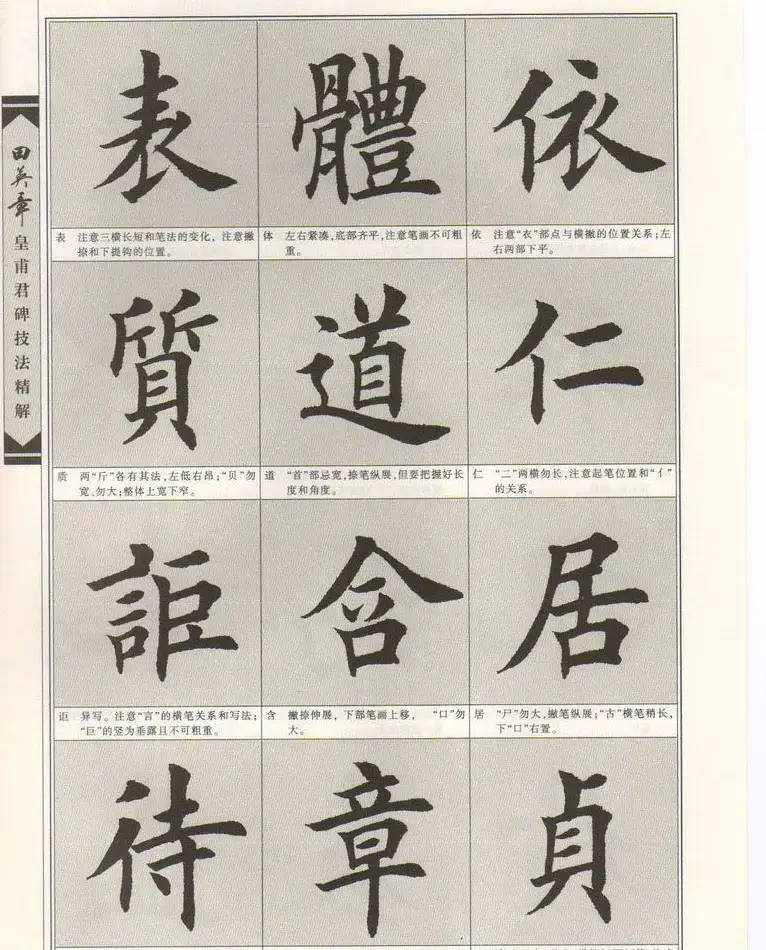 田英章
皇甫君碑技法精解
表 體 依
表 注意三横长短和笔法的变化，注意撇
捺和下提钩的位置。
体 左右紧凑，底部齐平，注意笔画不可粗
重。
依 注意“衣”部点与横撇的位置关系；左
右两部下平。
質 道 仁
质 两“斤”各有其法，左低右昂；“贝”勿
宽、勿大；整体上宽下窄。
道 “首”部忌宽，捺笔纵展，但要把握好长
度和角度。
仁 “二”两横勿长，注意起笔位置和“亻”
的关系。
詎 含 居
讵 异写。注意“言”的横笔关系和写法；
“巨”的竖为垂露且不可粗重。
含 撇捺伸展，下部笔画上移， “口”勿
大。
居 “尸”勿大，撇笔纵展；“古”横笔稍长，
下“口”右置。
待 章 貞